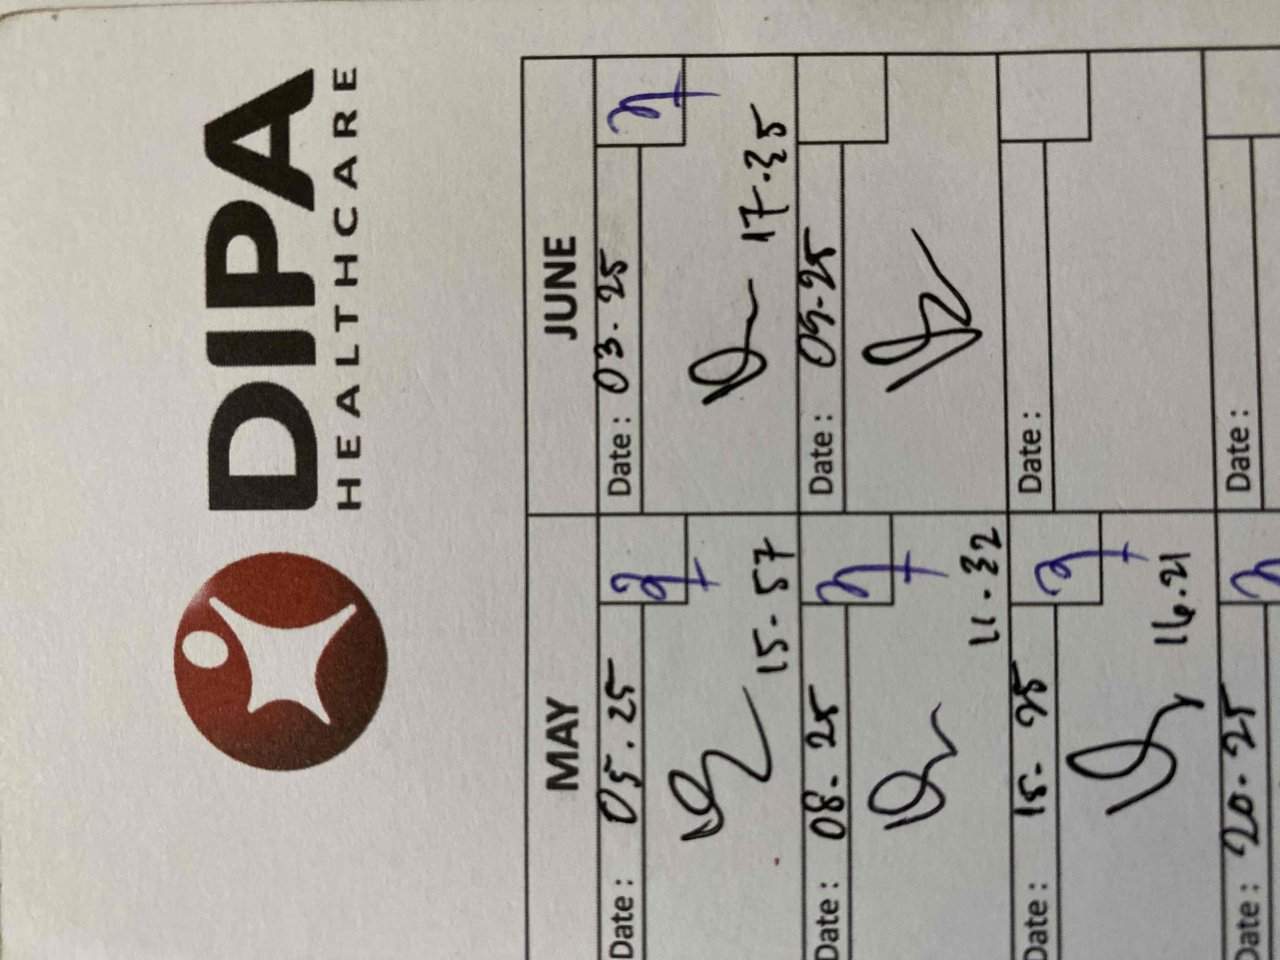 DIPA
HEALTHCARE
MAY
JUNE
Date : 05.25
15.57
Date : 03.25
17.35
Date : 08.25
11.32
Date : 09.25
Date : 15.25
16.21
Date :
Date : 20.25
Date :